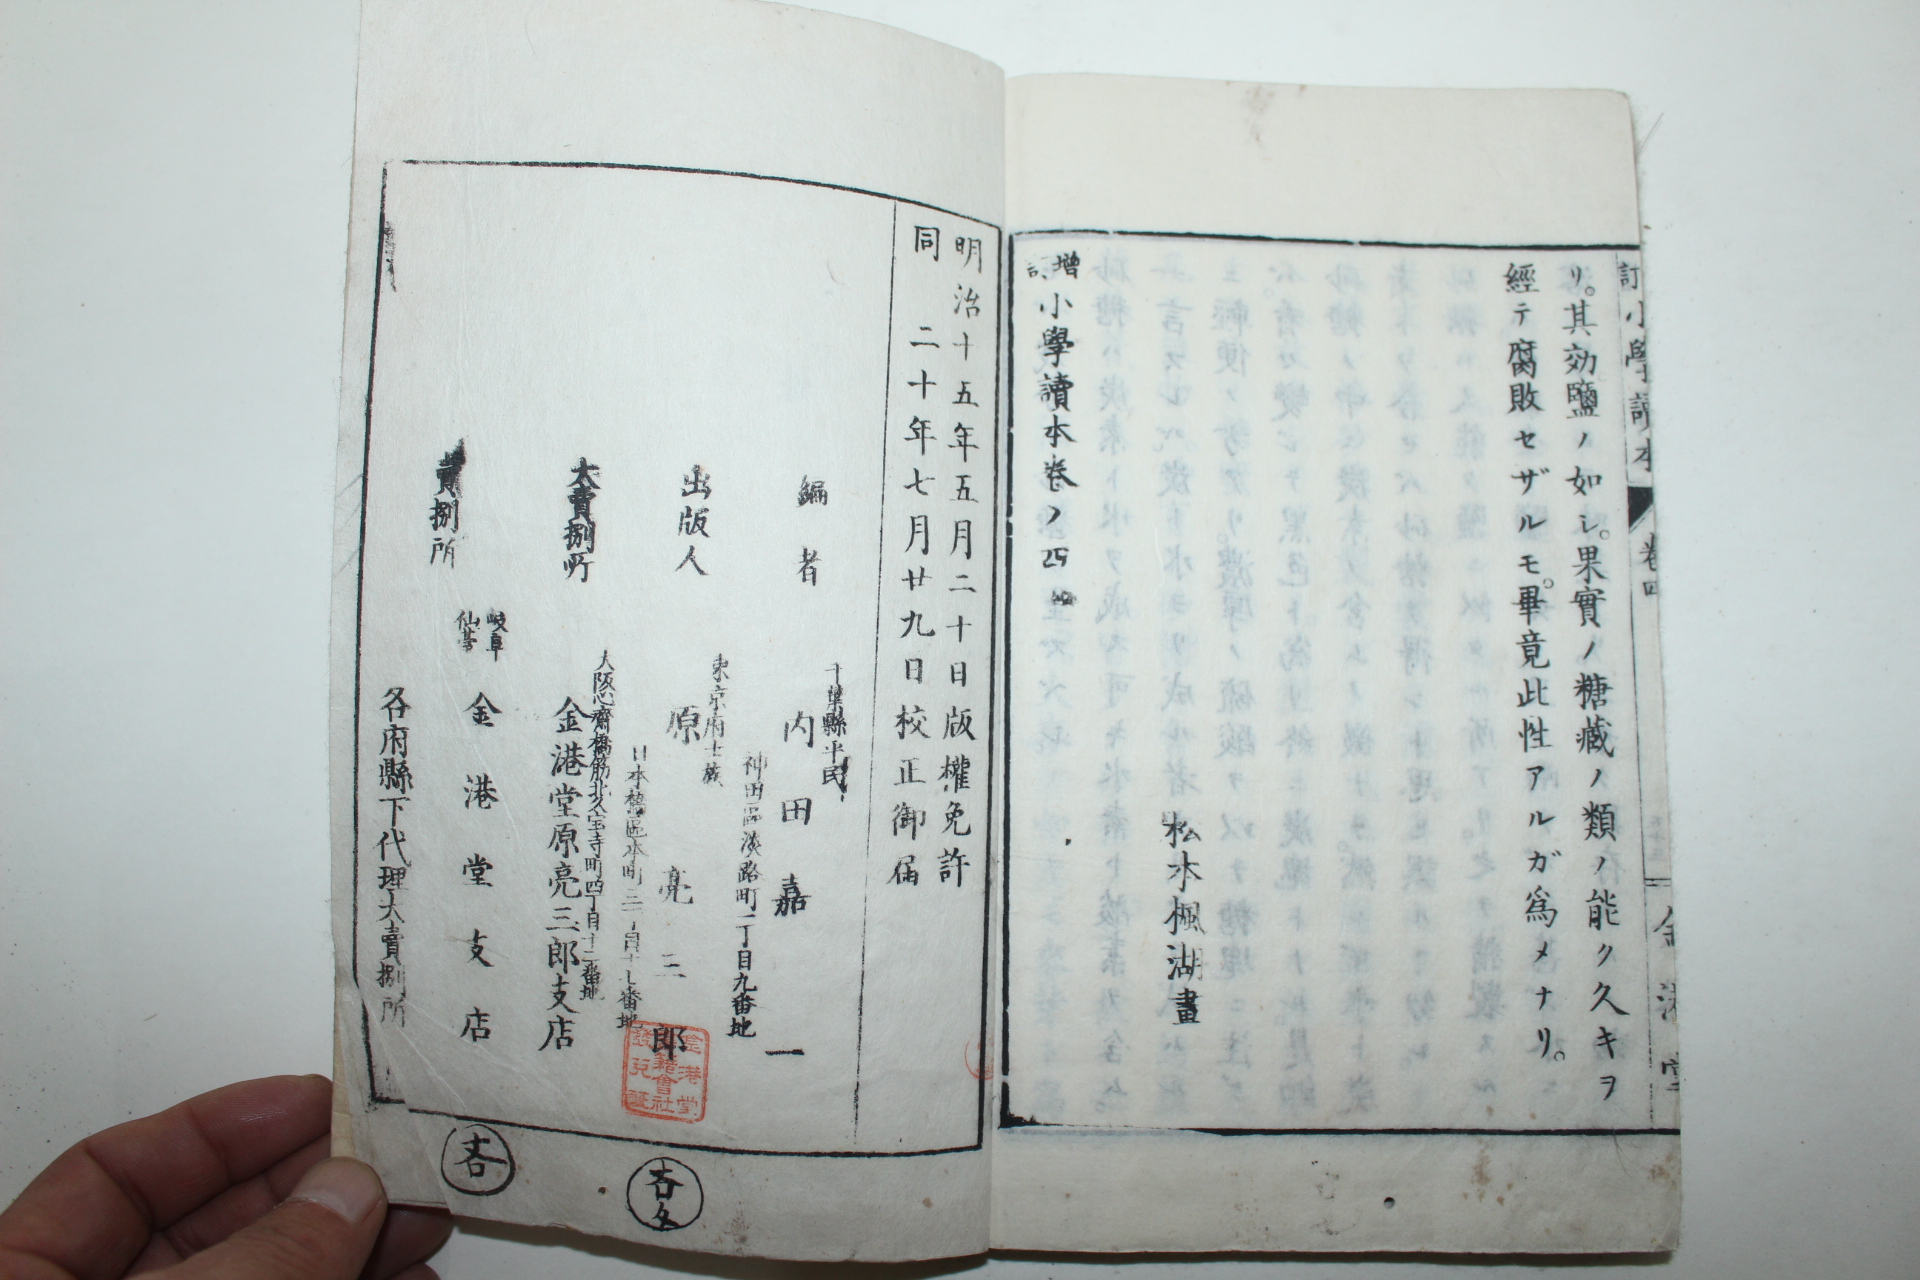 訂小學讀本
卷四
金港堂
リ。其効鹽ノ如シ。果實ノ糖藏ノ類ノ能ク久キヲ
經テ腐敗セザルモ。畢竟此性アルガ爲メナリ。
松本楓湖畫
增訂小學讀本卷ノ四終
明治十五年五月二十日版權免許
同二十年七月廿九日校正御届
千葉縣平民
編者 內田嘉一
神田區淡路町一丁目九番地
東京府士族
出版人 原亮三郎
日本橋區本町三丁目十七番地
大賣捌所 金港堂原亮三郎支店
大阪心齋橋筋北久宝寺町四丁目十二番地
賣捌所 岐阜 仙臺 金港堂支店
各府縣下代理大賣捌所
金港堂
書籍會社
發兌証